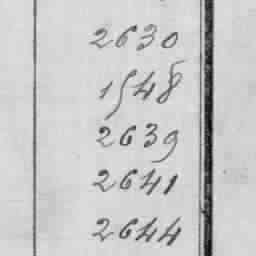 2630
1548
2639
2641
2644